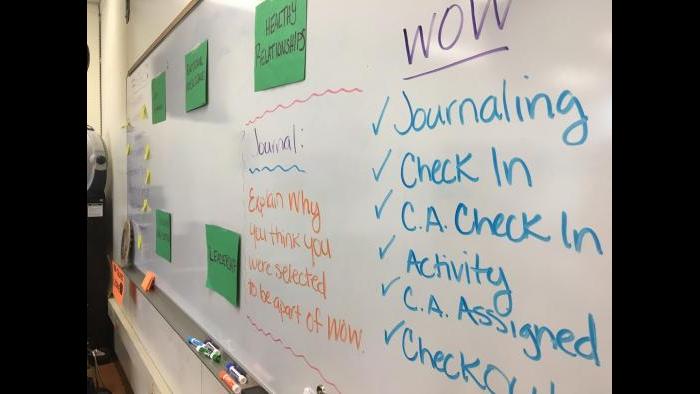 HEALTHY
RELATIONSHIPS
LEADERSHIP
Journal:
Explain Why
you think you
were selected
to be apart of WOW.
WOW
✓ Journaling
✓ Check In
✓ C.A. Check In
✓ Activity
✓ C.A. Assigned
✓ Checkout